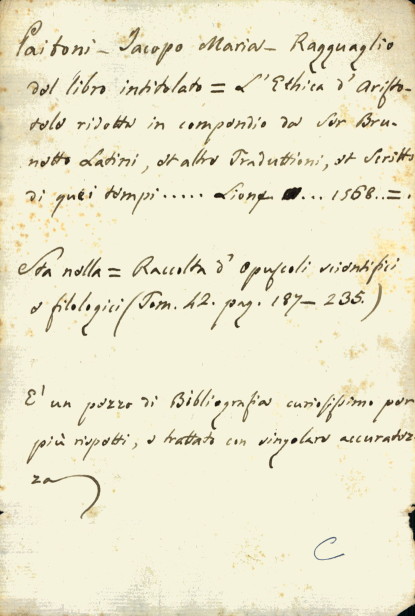 Paitoni - Jacopo Maria - Ragguaglio
del libro intitolato = L'Ethica d'Aristo-
tele ridotta in compendio da Ser Bru-
netto Latini, et altre Traduttioni, et Scritti
di quei tempi ..... Lione ... 1568. =.
Sta nella = Raccolta d'Opuscoli scientifici
e filologici (Tom. 42. pag. 187 - 235.)
E' un pezzo di Bibliografia curiosissimo per
più rispetti, e trattato con singolare accuratez-
za
C